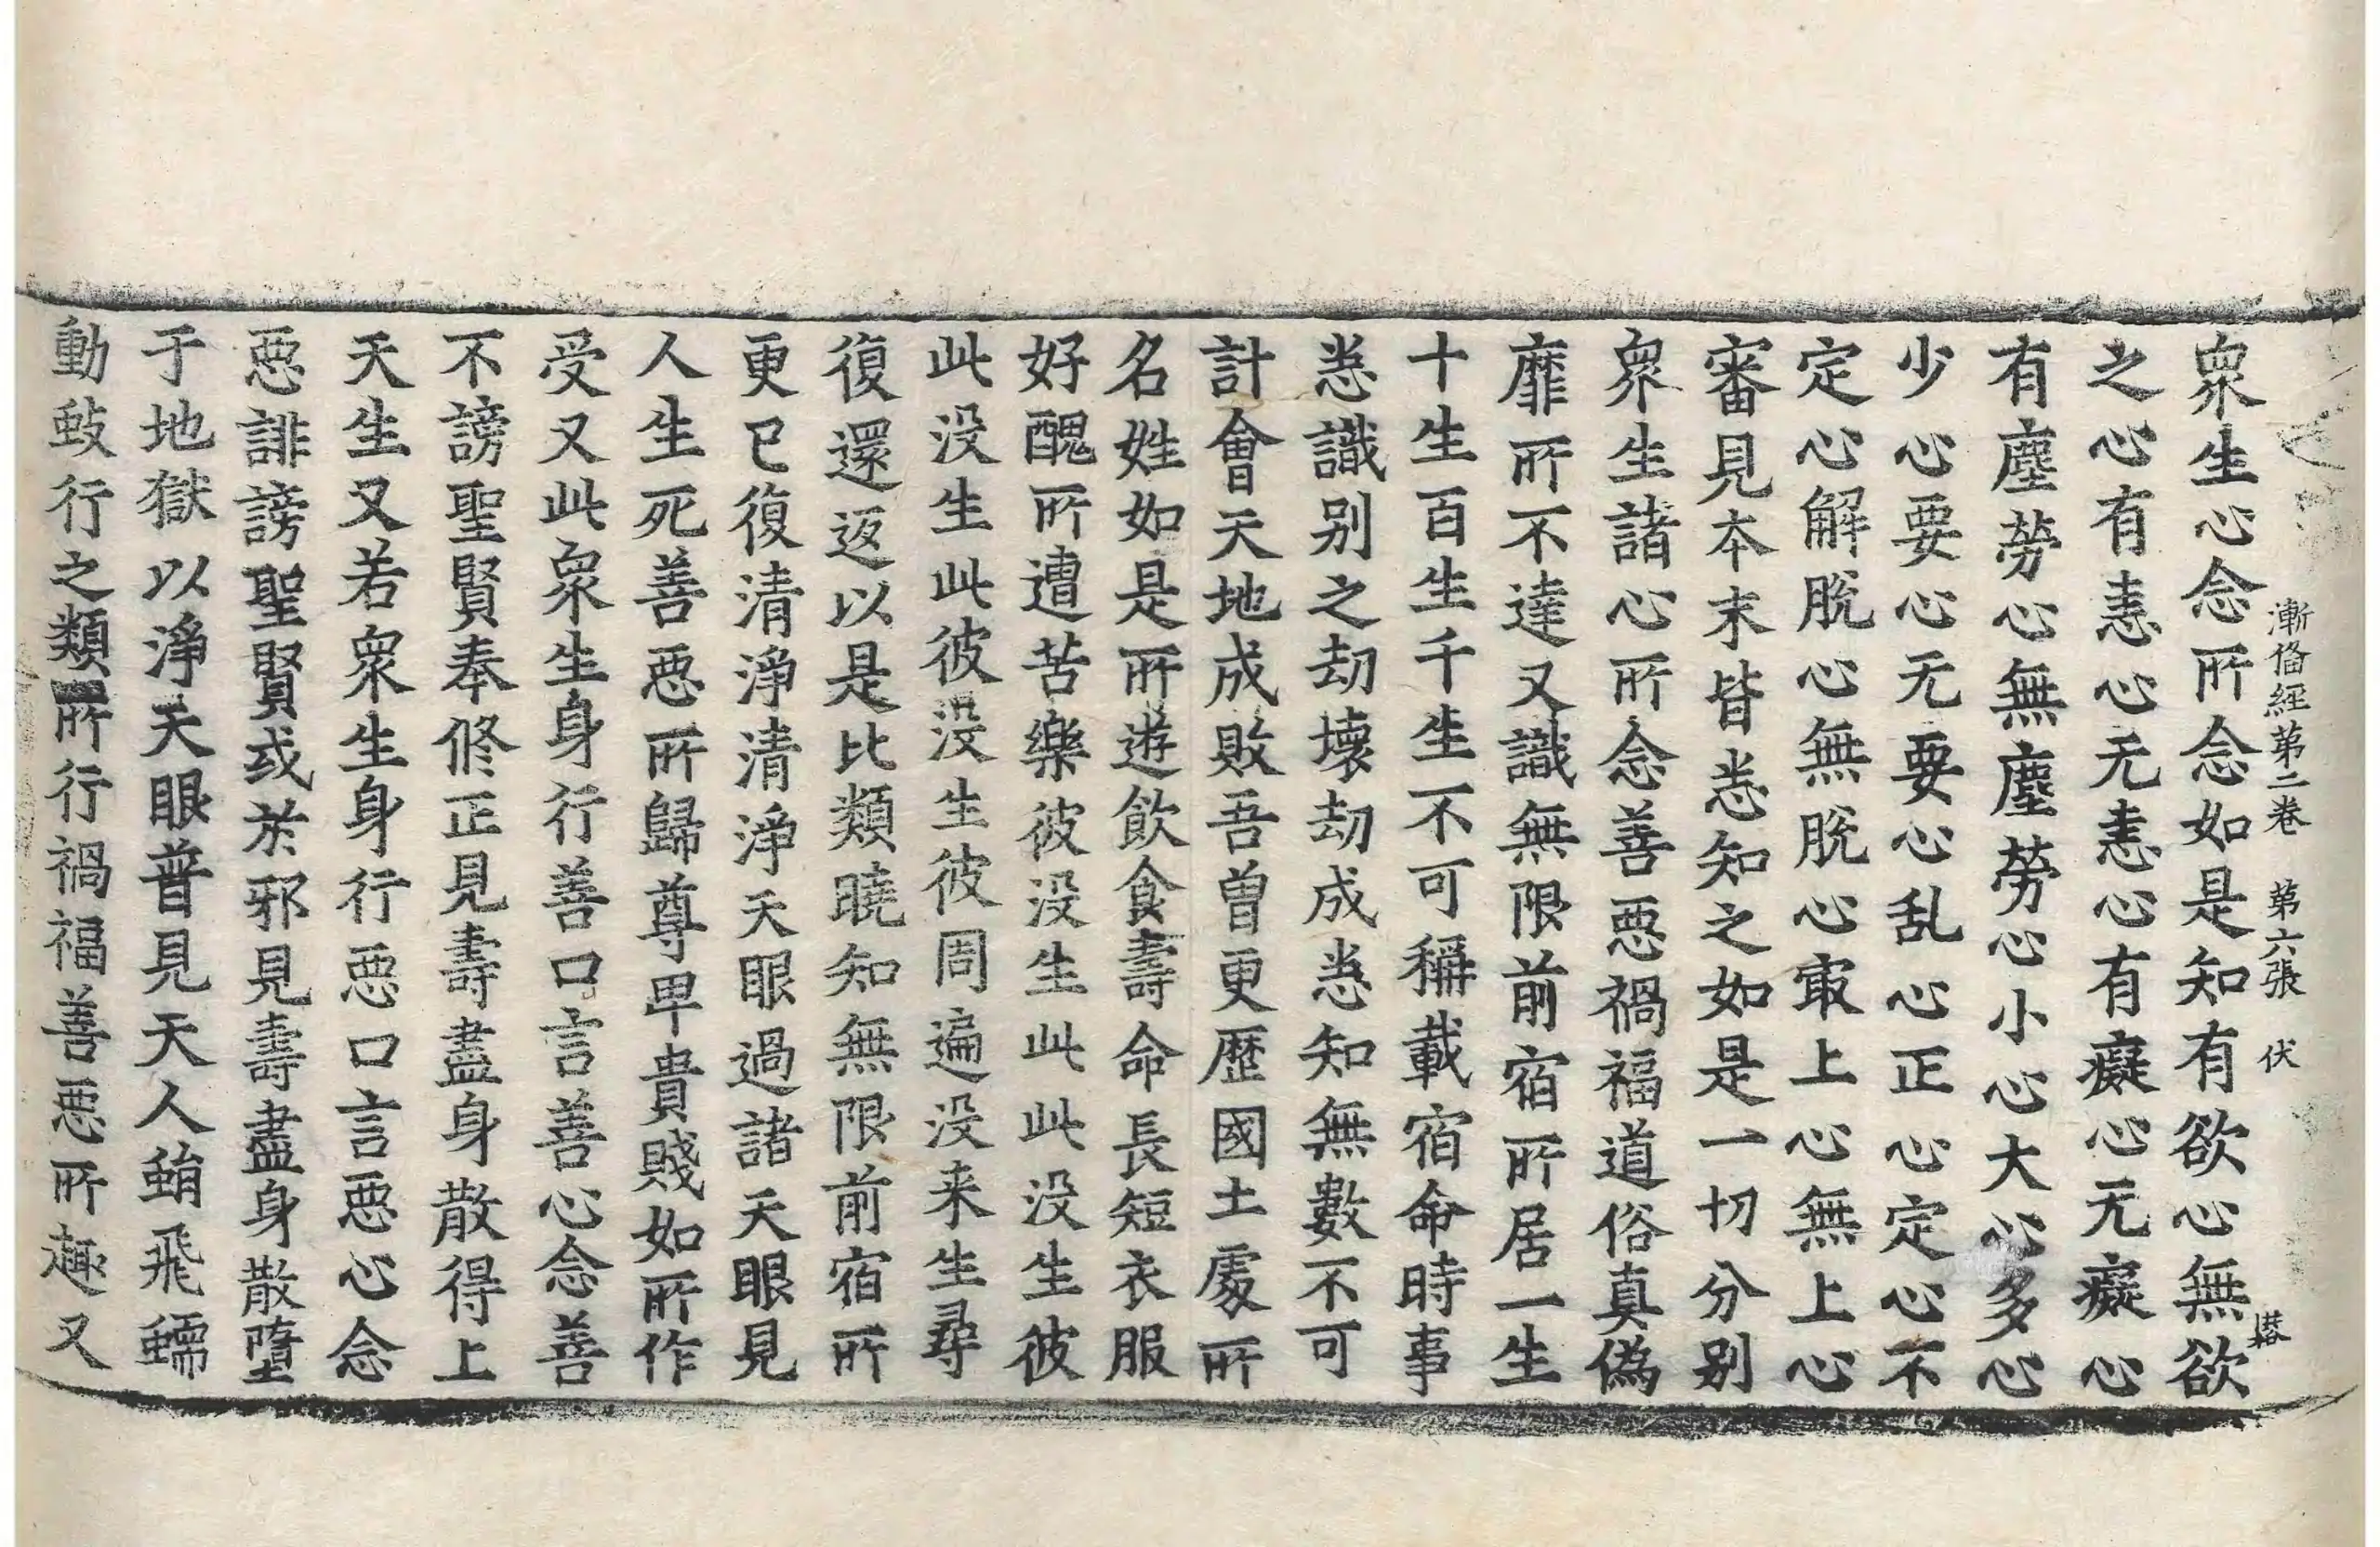 漸俻經第二卷　第六張　伏
㙮
衆生心念所念如是知有欲心無欲
之心有恚心无恚心有癡心无癡心
有塵勞心無塵勞心小心大心多心
少心要心无要心乱心正心定心不
定心解脫心無脫心㝡上心無上心
審見本末皆悉知之如是一切分别
衆生諸心所念善惡禍福道俗真偽
靡所不達又識無限前宿所居一生
十生百生千生不可稱載宿命時事
悉識别之劫壞劫成悉知無數不可
計會天地成敗吾曾更歷國土處所
名姓如是所遊飲食壽命長短衣服
好醜所遭苦樂彼没生此此没生彼
此没生此彼没生彼周遍没来生尋
復還返以是比類曉知無限前宿所
更已復清淨清淨天眼過諸天眼見
人生死善惡所歸尊卑貴賤如所作
受又此衆生身行善口言善心念善
不謗聖賢奉修正見壽盡身散得上
天生又若衆生身行惡口言惡心念
惡誹謗聖賢或於邪見壽盡身散墮
于地獄以淨天眼普見天人蜎飛蠕
動蚑行之類所行禍福善惡所趣又